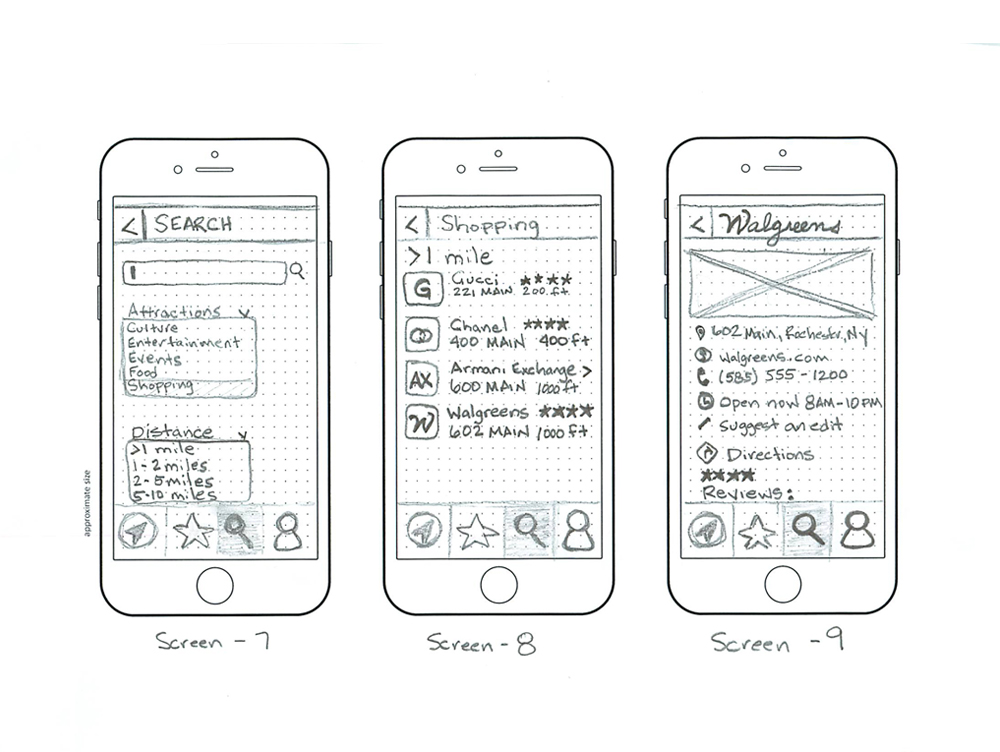 < SEARCH
Attractions
Culture
Entertainment
Events
Food
Shopping
Distance
>1 mile
1-2 miles
2-5 miles
5-10 miles
approximate size
Screen - 7
< Shopping
>1 mile
G
Gucci ★★★★
221 MAIN 200 ft
Chanel ★★★★
400 MAIN 400 ft
AX
Armani Exchange >
600 MAIN 1000 ft
W
Walgreens ★★★★
602 MAIN 1000 ft
Screen - 8
< Walgreens
602 Main, Rochester, NY
walgreens.com
(585) 555-1200
Open now 8AM-10PM
Suggest an edit
Directions
★★★★
Reviews:
Screen - 9